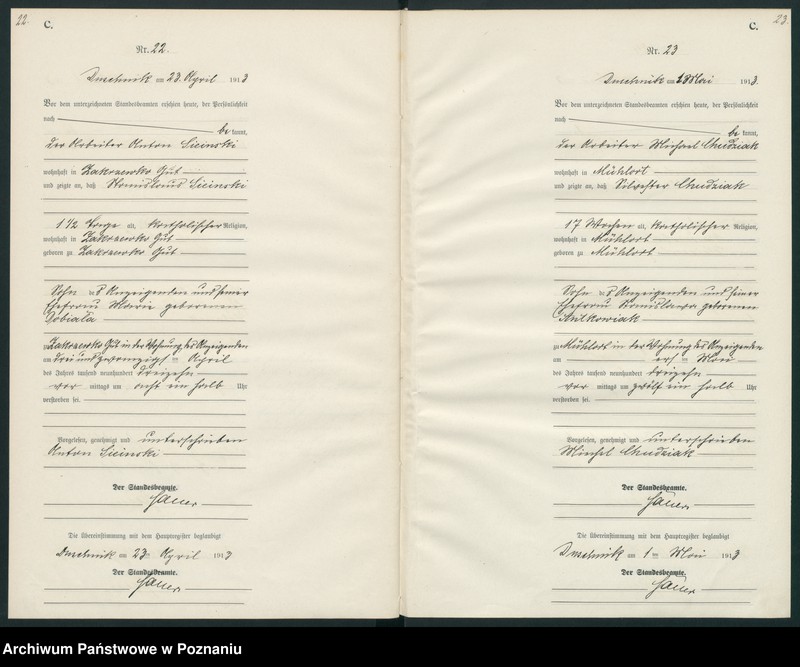 22.
C.
Nr. 22.
am 23. April 1913
Vor dem unterzeichneten Standesbeamten erschien heute, der Persönlichkeit
nach
be kannt,
der Arbeiter Anton Sicinski
wohnhaft in Zakrzewko Gut
und zeigte an, daß Stanislaus Sicinski
1 1/2 Tage alt, katholischer Religion,
wohnhaft in Zakrzewko Gut
geboren zu Zakrzewko Gut
Sohn des Anzeigenden und seiner
Ehefrau Marie geborenen
zu Zakrzewko Gut in der Wohnung des Anzeigenden
am drei und zwanzigsten April
des Jahres tausend neunhundert dreizehn
vor mittags um acht ein halb Uhr
verstorben sei.
Vorgelesen, genehmigt und unterschrieben
Anton Sicinski
Der Standesbeamte.
Die Übereinstimmung mit dem Hauptregister beglaubigt
am 23. April 1913
Der Standesbeamte.
23.
C.
Nr. 23
am Mai 1913.
Vor dem unterzeichneten Standesbeamten erschien heute, der Persönlichkeit
nach
be kannt,
der Arbeiter Michael Chudziak
wohnhaft in Mühlort
und zeigte an, daß Silvester Chudziak
17 Wochen alt, katholischer Religion,
wohnhaft in Mühlort
geboren zu Mühlort
Sohn des Anzeigenden und seiner
Ehefrau Stanislawa geborenen
Antkowiak
zu Mühlort in der Wohnung des Anzeigenden
am ersten Mai
des Jahres tausend neunhundert dreizehn
vor mittags um zwölf ein halb Uhr
verstorben sei.
Vorgelesen, genehmigt und unterschrieben
Chudziak
Der Standesbeamte.
Die Übereinstimmung mit dem Hauptregister beglaubigt
am 1ten Mai 1913
Der Standesbeamte.
Archiwum Państwowe w Poznaniu